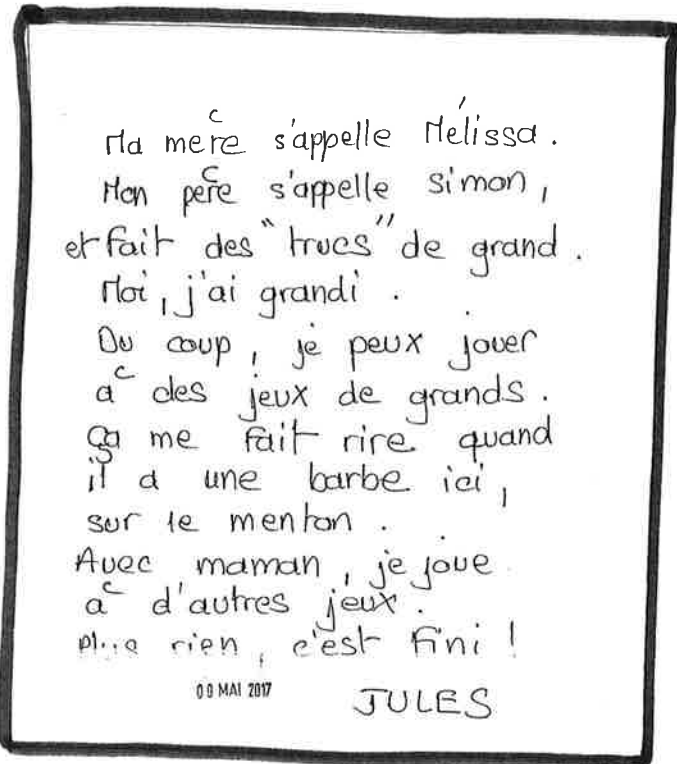 Ma mère s'appelle Mélissa.
Mon père s'appelle simon,
et fait des "trucs" de grand.
Moi, j'ai grandi.
Du coup, je peux jouer
à des jeux de grands.
Ça me fait rire quand
il a une barbe ici,
sur le menton.
Avec maman, je joue
à d'autres jeux.
plus rien, c'est fini !
09 MAI 2017
JULES